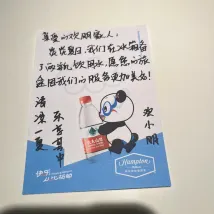 亲爱的欢朋家人：
炎炎夏日，我们在冰箱备
了两瓶饮用水，愿您的旅
途因我们的服务更加美好！
清凉一夏
乐享其中
欢小朋
Hampton
by HILTON